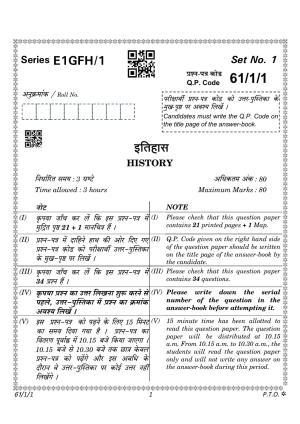 Series E1GFH/1
Set No. 1
प्रश्न-पत्र कोड
Q.P. Code 61/1/1
अनुक्रमांक / Roll No.
परीक्षार्थी प्रश्न-पत्र कोड को उत्तर-पुस्तिका के
मुख-पृष्ठ पर अवश्य लिखें ।
Candidates must write the Q.P. Code on
the title page of the answer-book.
इतिहास
HISTORY
निर्धारित समय : 3 घण्टे
अधिकतम अंक : 80
Time allowed : 3 hours
Maximum Marks : 80
नोट
NOTE
(I) कृपया जाँच कर लें कि इस प्रश्न-पत्र में
मुद्रित पृष्ठ 21 + 1 मानचित्र हैं ।
(I) Please check that this question paper
contains 21 printed pages + 1 Map.
(II) प्रश्न-पत्र में दाहिने हाथ की ओर दिए गए
प्रश्न-पत्र कोड को परीक्षार्थी उत्तर-पुस्तिका
के मुख-पृष्ठ पर लिखें ।
(II) Q.P. Code given on the right hand side
of the question paper should be written
on the title page of the answer-book by
the candidate.
(III) कृपया जाँच कर लें कि इस प्रश्न-पत्र में
34 प्रश्न हैं ।
(III) Please check that this question paper
contains 34 questions.
(IV) कृपया प्रश्न का उत्तर लिखना शुरू करने से
पहले, उत्तर-पुस्तिका में प्रश्न का क्रमांक
अवश्य लिखें ।
(IV) Please write down the serial
number of the question in the
answer-book before attempting it.
(V) इस प्रश्न-पत्र को पढ़ने के लिए 15 मिनट
का समय दिया गया है । प्रश्न-पत्र का
वितरण पूर्वाह्न में 10.15 बजे किया जाएगा ।
10.15 बजे से 10.30 बजे तक छात्र केवल
प्रश्न-पत्र को पढ़ेंगे और इस अवधि के
दौरान वे उत्तर-पुस्तिका पर कोई उत्तर नहीं
लिखेंगे ।
(V) 15 minute time has been allotted to
read this question paper. The question
paper will be distributed at 10.15
a.m. From 10.15 a.m. to 10.30 a.m., the
students will read the question paper
only and will not write any answer on
the answer-book during this period.
61/1/1
1
P.T.O.